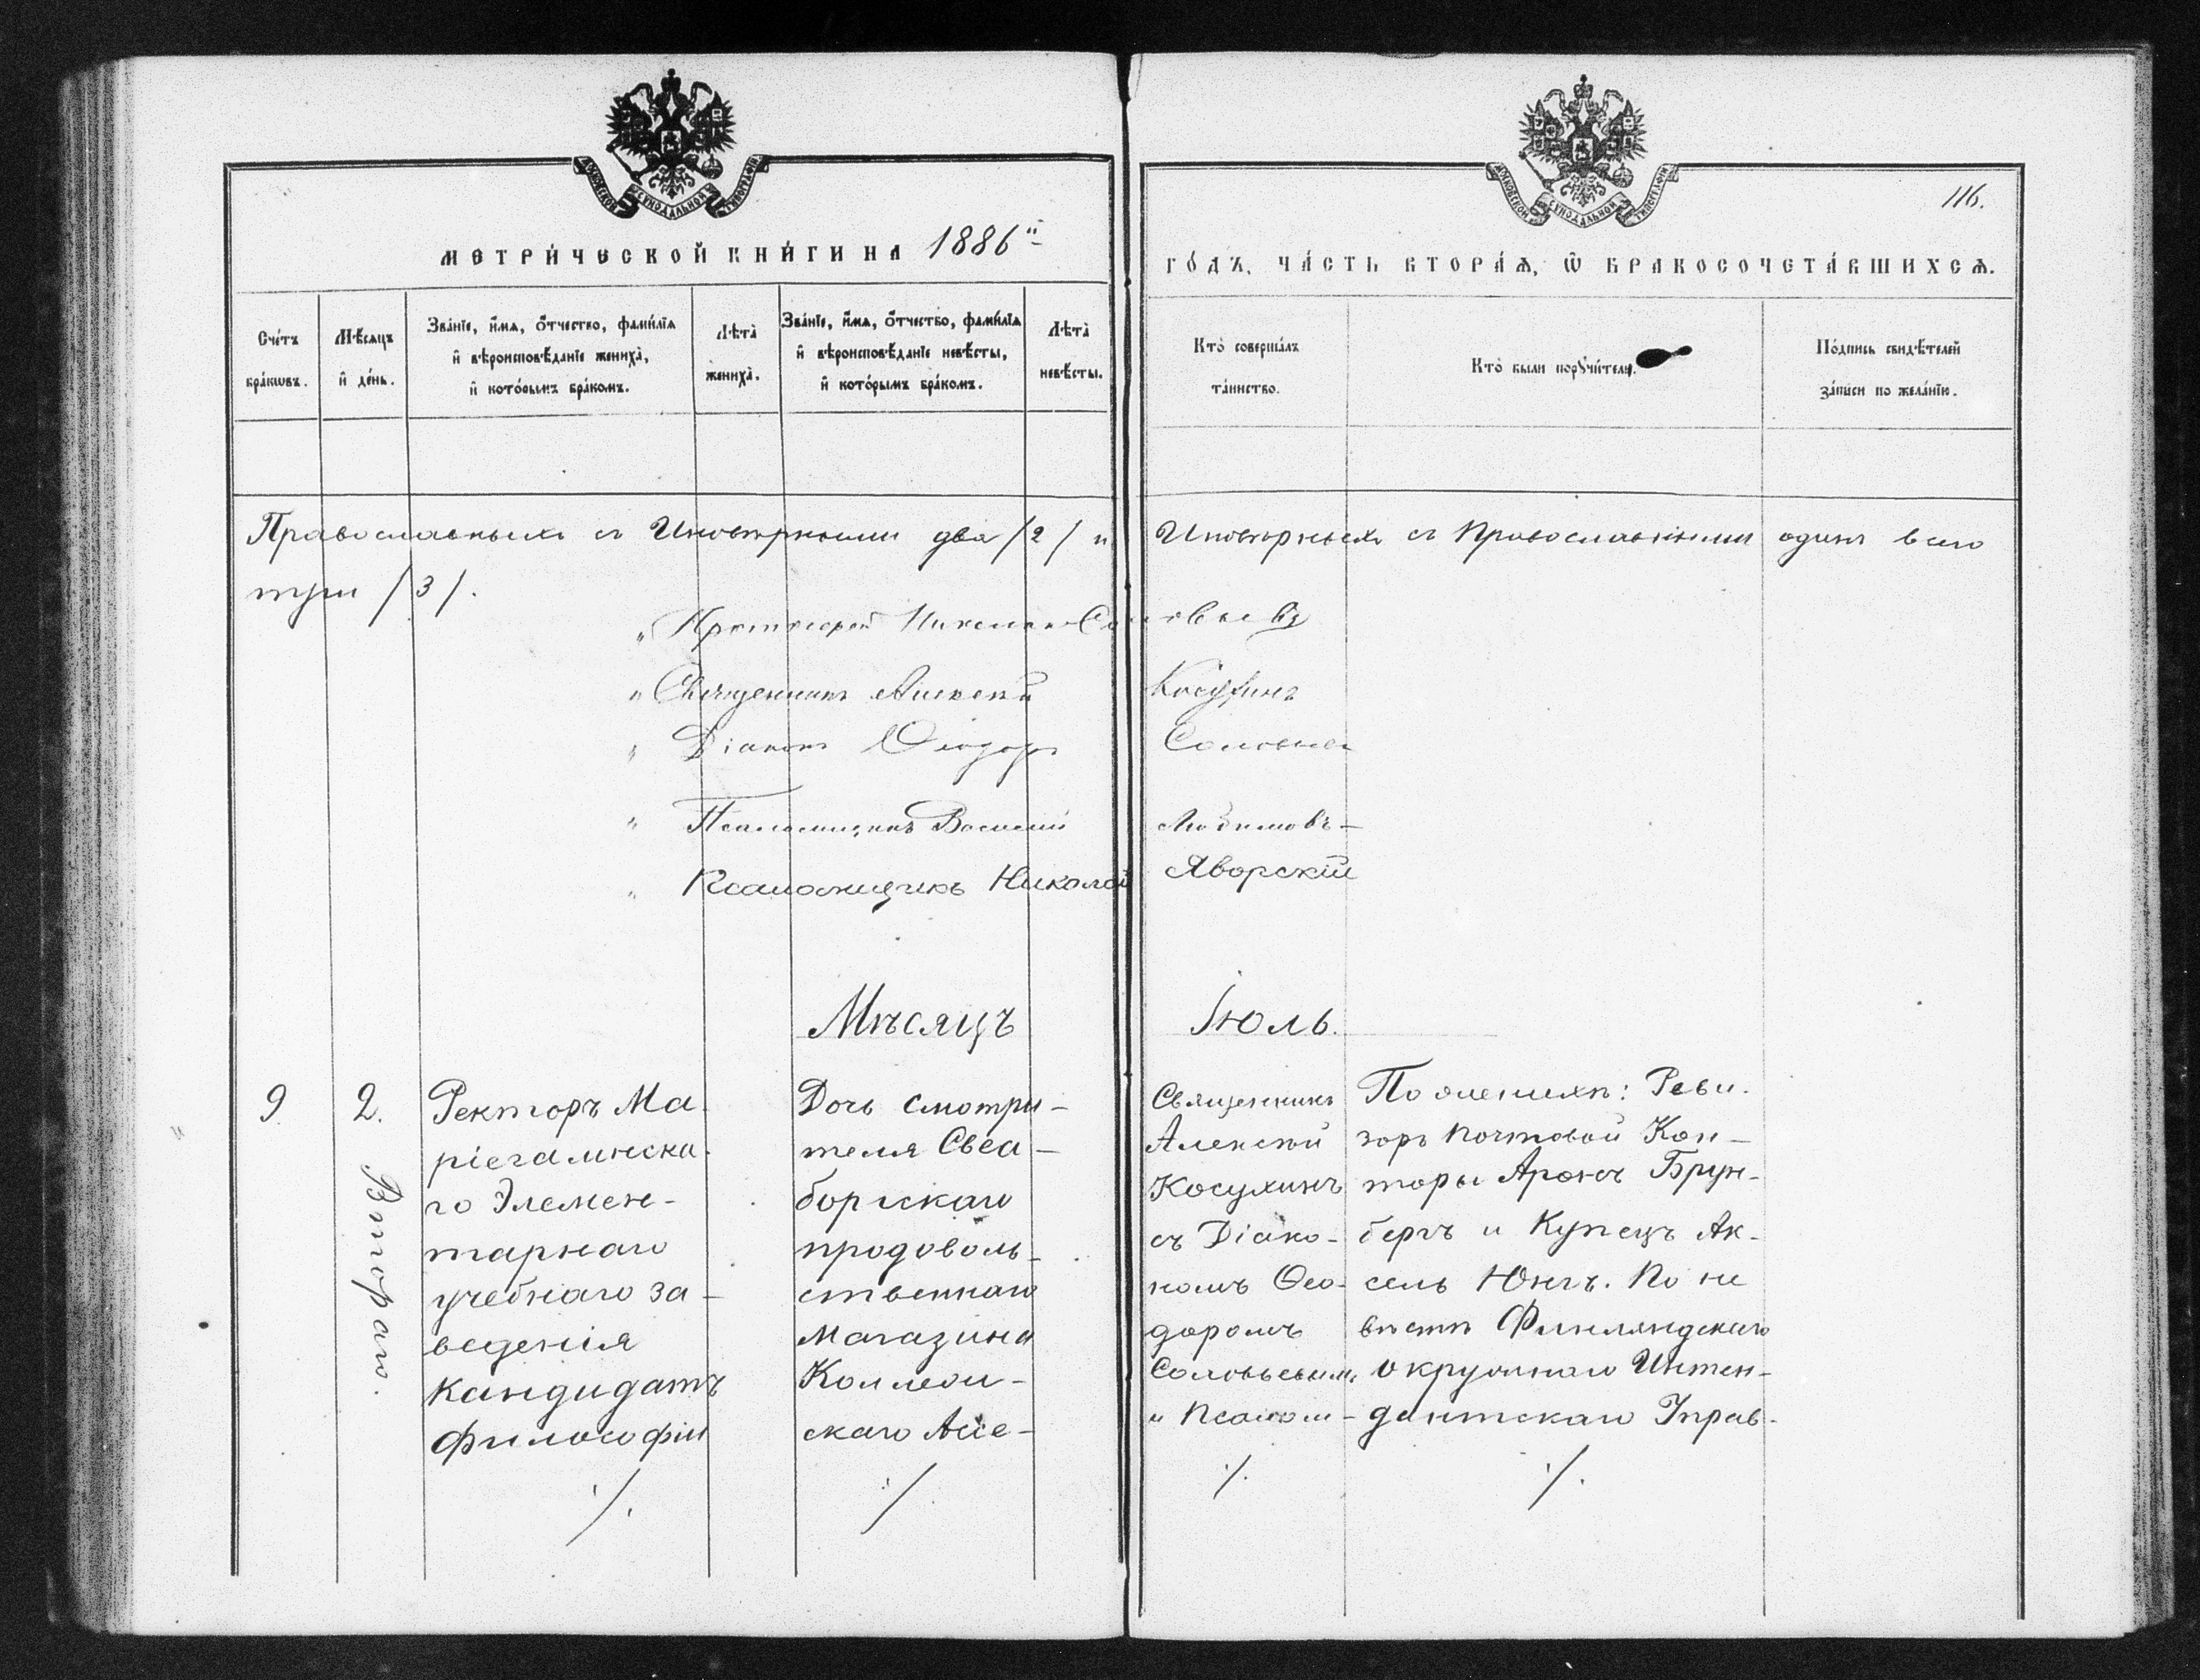 116.
МЕТРИ́ЧЕСКОЙ КНИ́ГИ НА 1886й
ГО́ДЪ, ЧА́СТЬ ВТОРА́Ѧ, Ѿ БРАКОСОЧЕТА́ВШИХСѦ.
Сче́тъ бра́кωвъ.
Мѣ́сяцъ и҆ де́нь.
Зва́нїе, и҆́мѧ, о҆́тчество, фамі́лїѧ
и҆ вѣроисповѣ́данїе жениха̀,
и҆ кото́рымъ бра́комъ.
Лѣ́та̀ жениха̀.
Зва́нїе, и҆́мѧ, о҆́тчество, фамі́лїѧ
и҆ вѣроисповѣ́данїе невѣ́сты,
и҆ кото́рымъ бра́комъ.
Лѣ́та̀ невѣ́сты.
Кто̀ соверша́лъ
та́инство.
Кто̀ были порꙋчи́тели.
По́дпись свидѣ́телей
за́писи по жела́нїю.
Православныхъ съ Иновѣрными два /2/ и Иновѣрныхъ съ Православными одинъ всего
три /3/.
„ Протоіерей Николай Соловьевъ
„ Священникъ Алексѣй Косухинъ
„ Діаконъ Ѳеодоръ Соловьевъ
„ Псаломщикъ Василій Любимовъ
„ Псаломщикъ Николай Яворскій
Мѣсяцъ Іюль.
9.
2.
Втораго.
Ректоръ Ма
ріегамнска
го Элемен-
тарнаго
учебнаго за-
веденія
Кандидатъ
Философіи
./.
Дочь смотри-
теля Свеа-
боргскаго
продоволь-
ственнаго
Магазина
Коллеж-
скаго Ассе-
./.
Священникъ
Алексѣй
Косухинъ
съ Діако-
номъ Ѳео-
доромъ
Соловьевымъ
и Псалом-
./.
По женихѣ: Реви-
зоръ почтовой Кон-
торы Аронъ Брун-
бергъ и Купецъ Ак-
сель Юнгъ. По не
вѣстѣ Финляндскаго
Окружнаго Интен-
дантскаго Управ-
./.